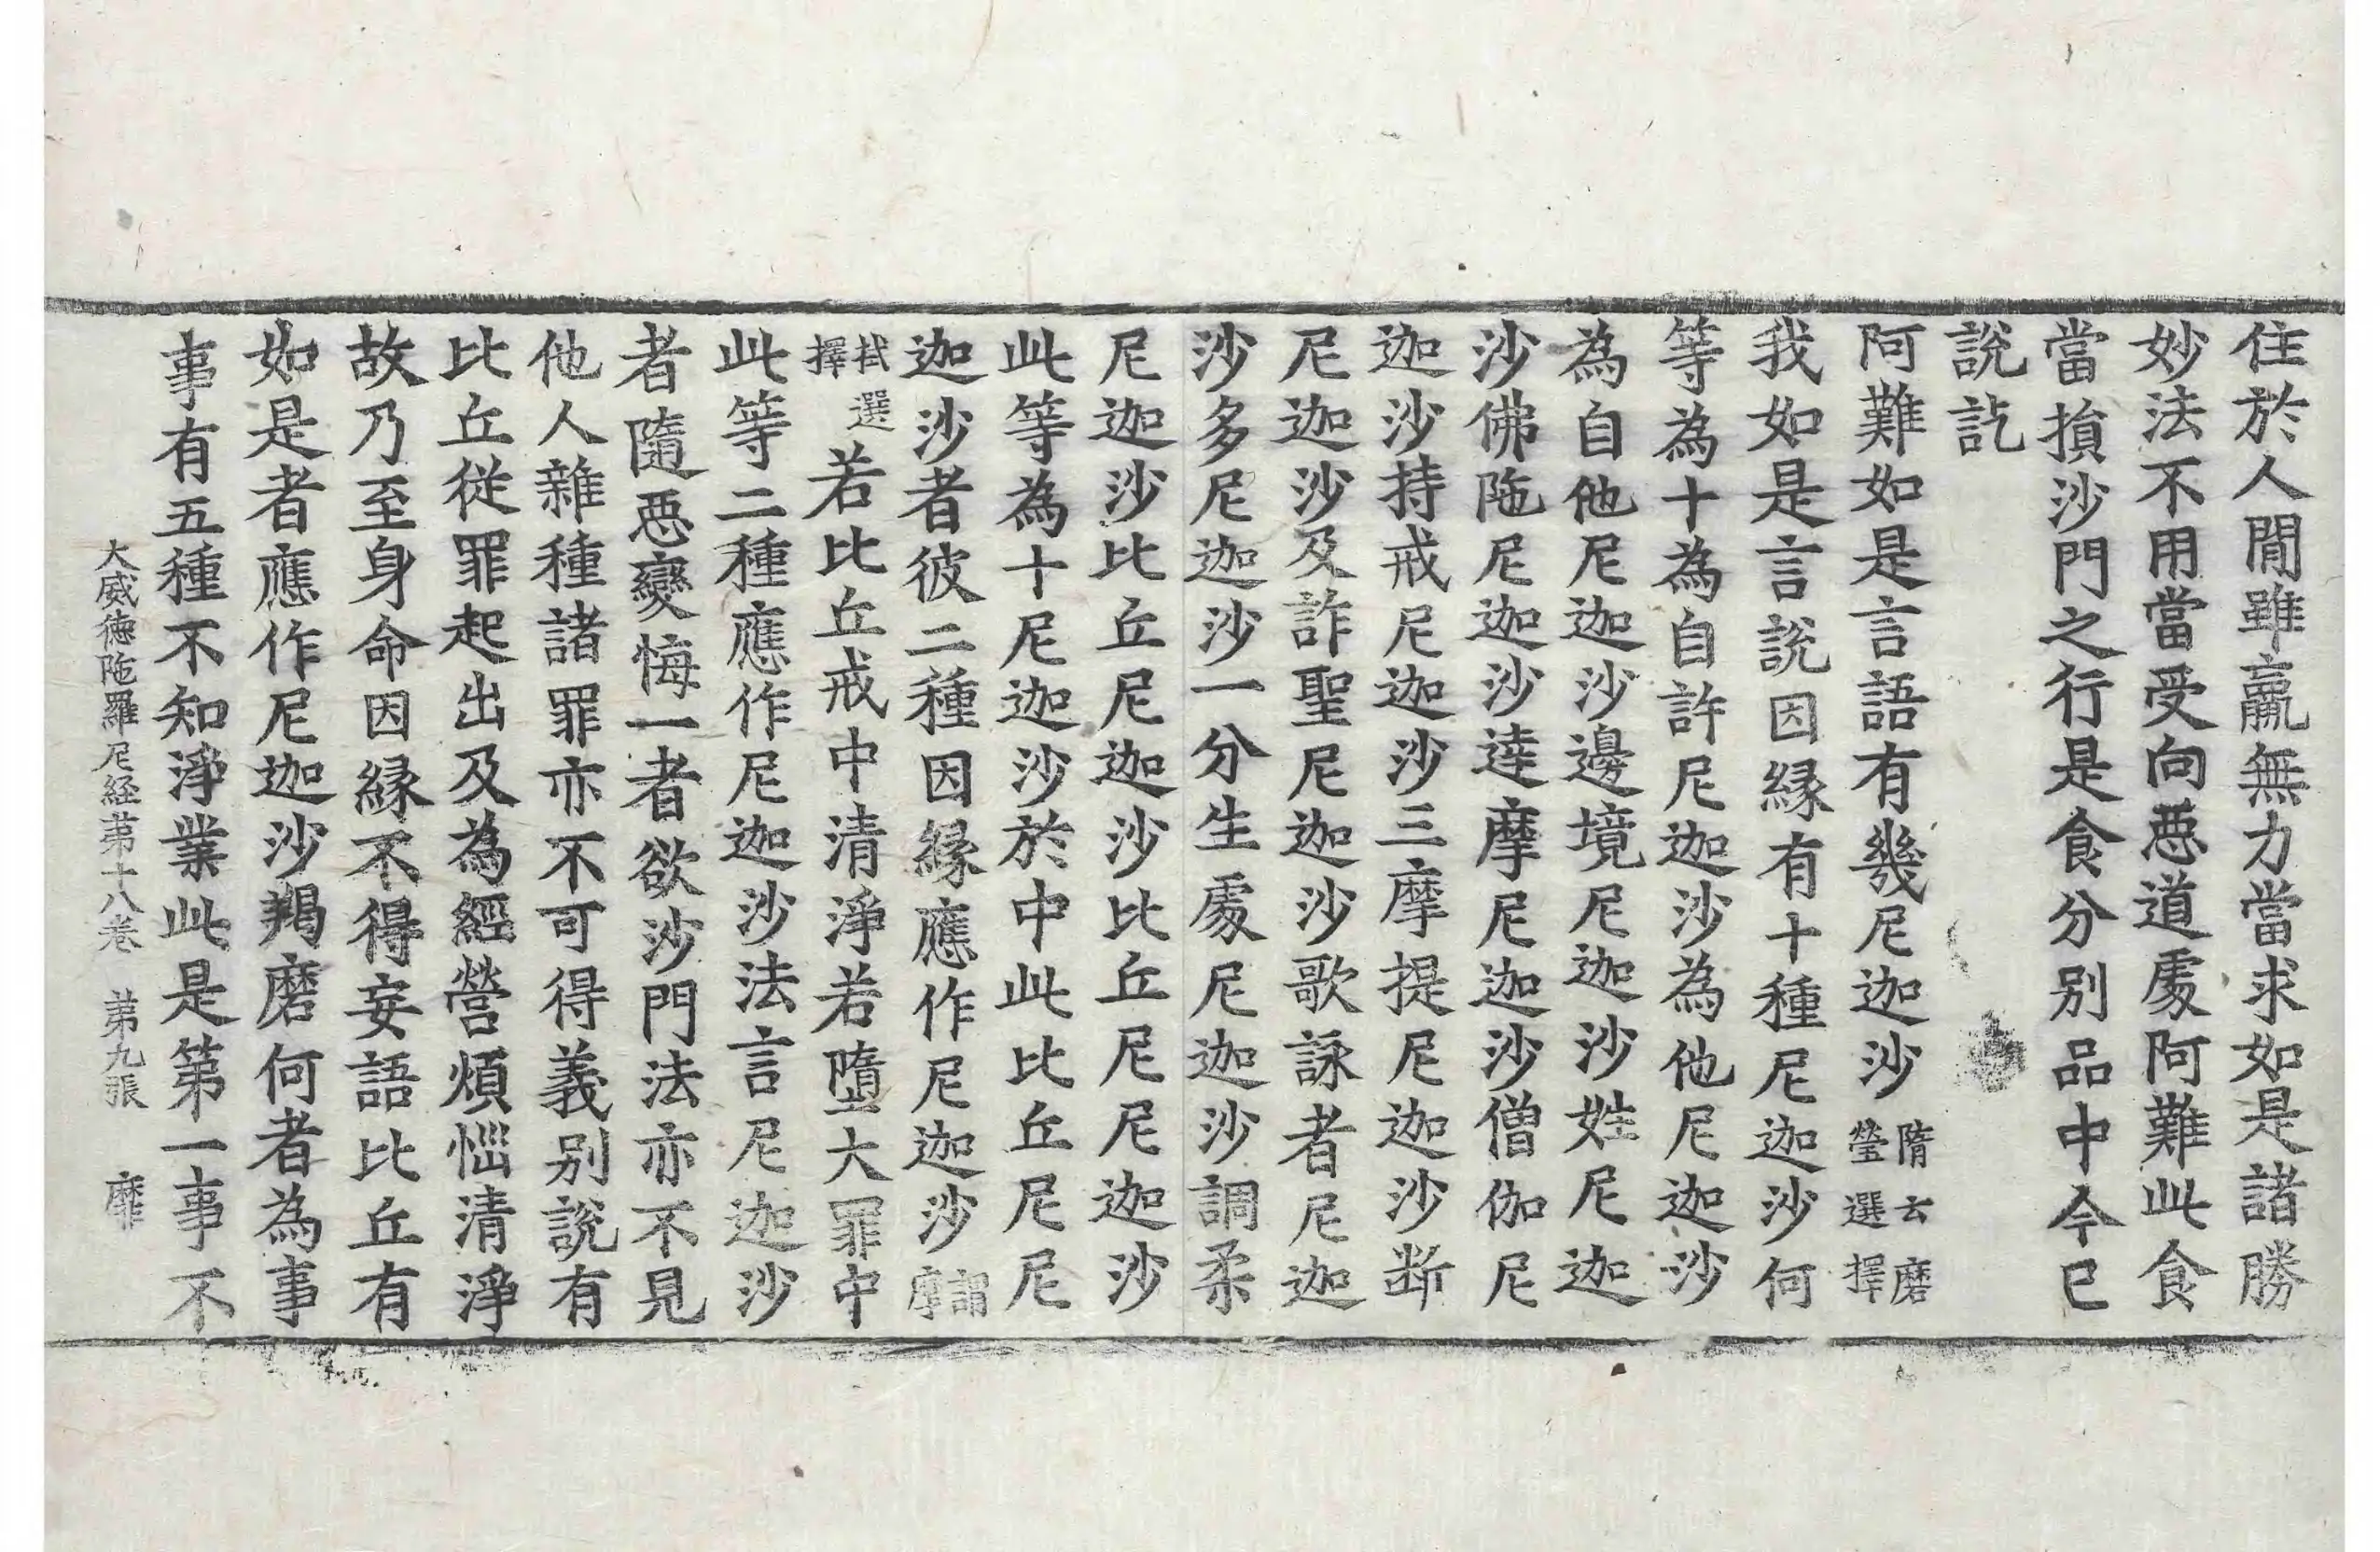 住於人閒雖羸無力當求如是諸勝
妙法不用當受向惡道處阿難此食
當損沙門之行是食分別品中今已
說訖
阿難如是言語有幾尼迦沙隋云磨瑩選擇
我如是言說因緣有十種尼迦沙何
等為十為自許尼迦沙為他尼迦沙
為自他尼迦沙邊境尼迦沙姓尼迦
沙佛陁尼迦沙達摩尼迦沙僧伽尼
迦沙持戒尼迦沙三摩提尼迦沙断
尼迦沙及詐聖尼迦沙歌詠者尼迦
沙多尼迦沙一分生處尼迦沙調柔
尼迦沙比丘尼迦沙比丘尼尼迦沙
此等為十尼迦沙於中此比丘尼尼
迦沙者彼二種因緣應作尼迦沙謂摩
拭選擇若比丘戒中清淨若墮大罪中
此等二種應作尼迦沙法言尼迦沙
者隨惡變悔一者欲沙門法亦不見
他人雜種諸罪亦不可得義別說有
比丘從罪起出及為經營煩惱清淨
故乃至身命因緣不得妄語比丘有
如是者應作尼迦沙羯磨何者為事
事有五種不知淨業此是第一事不
大威德陁羅尼経苐十八卷 苐九張 靡